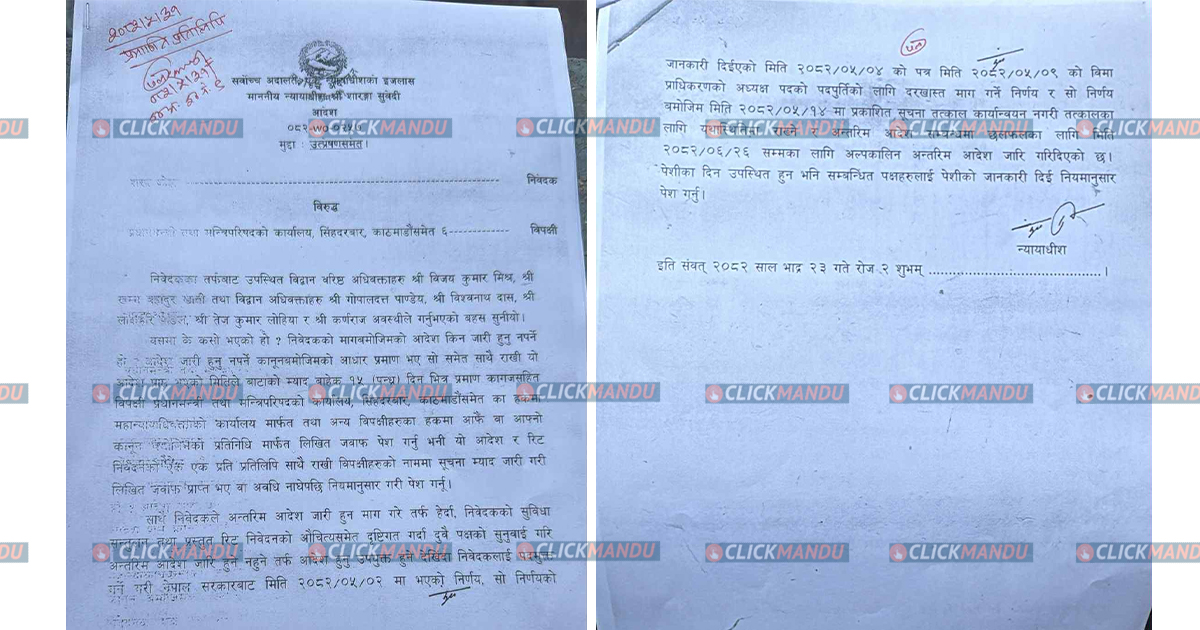 २०८२।५।३१
सर्वोच्च अदालत, एक न्यायाधीशको इजलास
माननीय न्यायाधीश श्री शारङ्गा सुवेदी
आदेश
०८२-WO-०२५७
मुद्दा : उत्प्रेषणसमेत।
निवेदक
विरुद्ध
प्रधानमन्त्री तथा मन्त्रिपरिषदको कार्यालय, सिंहदरबार, काठमाडौंसमेत ६ विपक्षी
निवेदकका तर्फबाट उपस्थित विद्वान वरिष्ठ अधिवक्ताहरु श्री विजय कुमार मिश्र, श्री
तथा विद्वान अधिवक्ताहरु श्री गोपालदत्त पाण्डेय, श्री विश्वनाथ दास, श्री
श्री तेज कुमार लोहिया र श्री कर्णराज अवस्थीले गर्नुभएको बहस सुनीयो।
यसमा के कसो भएको हो ? निवेदकको मागबमोजिमको आदेश किन जारी हुनु नपर्ने
हो ? आदेश जारी हुनु नपर्ने कानूनबमोजिमको आधार प्रमाण भए सो समेत साथै राखी यो
आदेश प्राप्त भएको मितिले बाटाको म्याद बाहेक १५ (पन्ध्र) दिन भित्र प्रमाण कागजसहित
विपक्षी प्रधानमन्त्री तथा मन्त्रिपरिषदको कार्यालय, सिंहदरबार, काठमाडौंसमेत का हकमा
महान्यायाधिवक्ताको कार्यालय मार्फत तथा अन्य विपक्षीहरुका हकमा आफै वा आफ्नो
कानून बमोजिमको प्रतिनिधि मार्फत लिखित जवाफ पेश गर्नु भनी यो आदेश र रिट
निवेदनको एक एक प्रति प्रतिलिपि साथै राखी विपक्षीहरुको नाममा सूचना म्याद जारी गरी
लिखित जवाफ प्राप्त भए वा अवधि नाघेपछि नियमानुसार गरी पेश गर्नू।
साथै निवेदकले अन्तरिम आदेश जारी हुन माग गरे तर्फ हेर्दा, निवेदकको सुविधा
सन्तुलन तथा प्रस्तुत रिट निवेदनको औचित्यसमेत दृष्टिगत गर्दा दुवै पक्षको सुनुवाई गरि
अन्तरिम आदेश जारि हुने नहुने तर्फ आदेश हुनु उपयुक्त हुने देखिँदा निवेदकलाई पदमुक्त
गर्ने गरी नेपाल सरकारबाट मिति २०८२/०५/०२ मा भएको निर्णय, सो निर्णयको
जानकारी दिईएको मिति २०८२/०५/०४ को पत्र मिति २०८२/०५/०९ को विमा
प्राधिकरणको अध्यक्ष पदको पदपुर्तिको लागि दरखास्त माग गर्ने निर्णय र सो निर्णय
बमोजिम मिति २०८२/०५/१४ मा प्रकाशित सूचना तत्काल कार्यान्वयन नगरी तत्कालका
लागि यथास्थितिमा राख्ने र अन्तरिम आदेश सम्बन्धमा छलफलका लागि मिति
२०८२/०६/२६ सम्मका लागि अल्पकालिन अन्तरिम आदेश जारि गरिदिएको छ।
पेशीका दिन उपस्थित हुन भनि सम्बन्धित पक्षहरुलाई पेशीको जानकारी दिई नियमानुसार
पेश गर्नु।
न्यायाधीश
इति संवत् २०८२ साल भाद्र २३ गते रोज २ शुभम् ।
CLICKMANDU